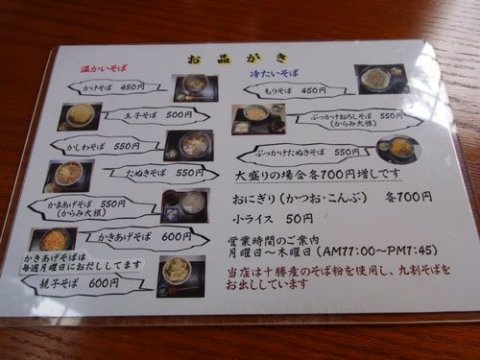 お品がき
温かいそば
かけそば 450円
玉子そば 500円
かしわそば 550円
たぬきそば 550円
かまあげそば 550円
(からみ大根)
かきあげそば 600円
かきあげそばは
毎週月曜日におだししてます
親子そば 600円
冷たいそば
もりそば 450円
ぶっかけおろしそば 550円
(からみ大根)
ぶっかけたぬきそば 550円
大盛りの場合各100円増しです
おにぎり(かつお・こんぶ) 各100円
小ライス 50円
営業時間のご案内
月曜日〜木曜日(AM11:00〜PM1:45)
当店は十勝産のそば粉を使用し、九割そばを
お出ししています